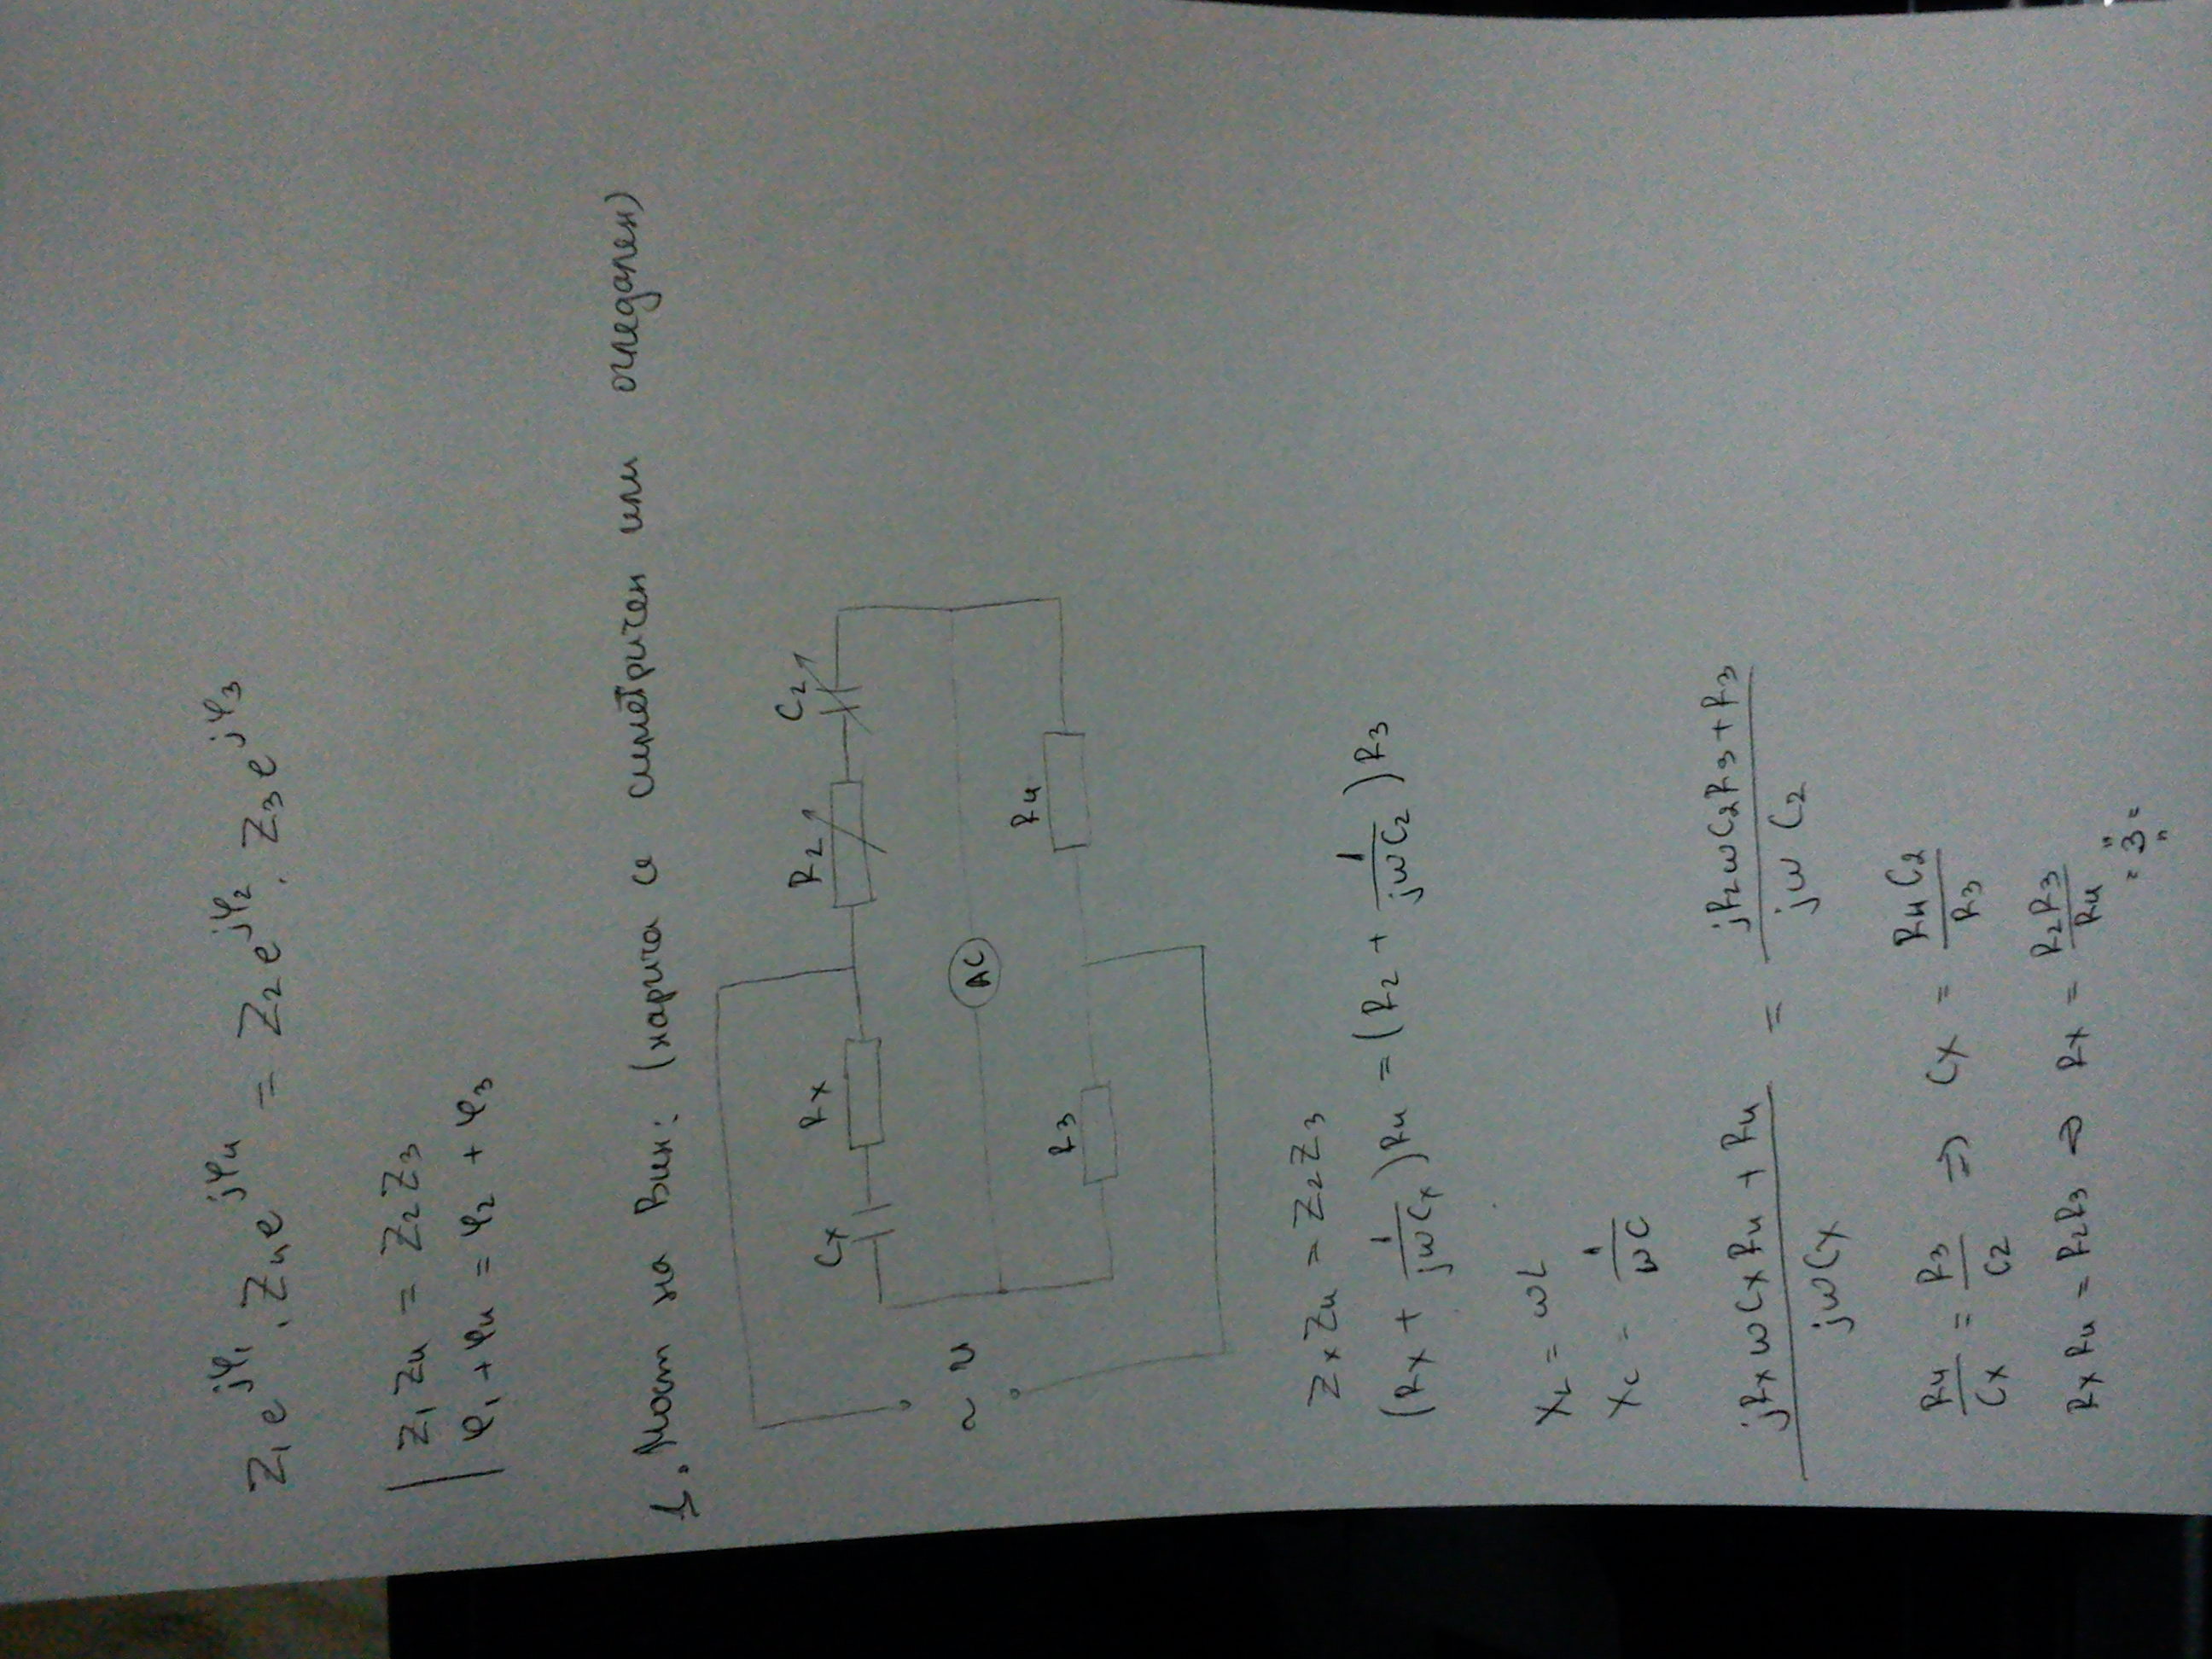 Z₁e^jφ₁ . Z₄e^jφ₄ = Z₂e^jφ₂ . Z₃e^jφ₃
Z₁Z₄ = Z₂Z₃
φ₁+φ₄ = φ₂+φ₃
1. Мост на Вин: (нарича се симетричен или огледален)
Cx Rx R₂ C₂
~ U AC
R₃ R₄
ZxZ₄ = Z₂Z₃
(Rx + 1/jωCx)R₄ = (R₂ + 1/jωC₂)R₃
X_L = ωL
X_C = 1/ωC
(jRxωCxR₄ + R₄)/jωCx = (jR₂ωC₂R₃ + R₃)/jωC₂
R₄/Cx = R₃/C₂ ⇒ Cx = R₄C₂/R₃
RxR₄ = R₂R₃ ⇒ Rx = R₂R₃/R₄
= 3 =